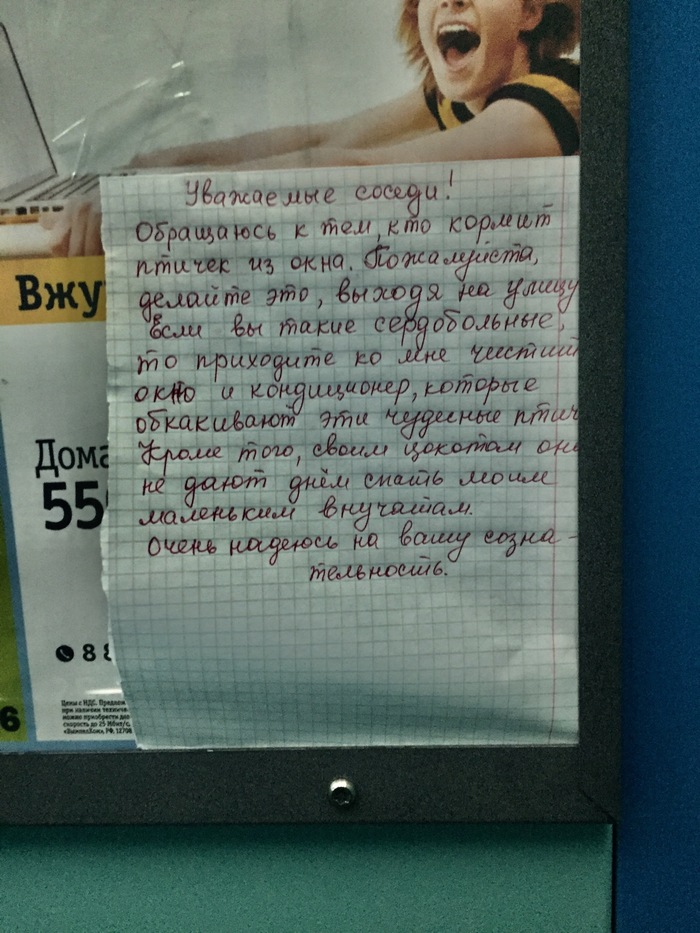 Уважаемые соседи!
Обращаюсь к тем, кто кормит
птичек из окна. Пожалуйста,
делайте это, выходя на улицу
Если вы такие сердобольные,
то приходите ко мне чистить
окно и кондиционер, которые
обкакивают эти чудесные птич
Кроме того, своим цокотом они
не дают днём спать моим
маленьким внучатам.
Очень надеюсь на вашу созна-
тельность.
Вжу
Дома
55
8 8
6
Цены с НДС. Предлож
при наличии техниче
можно приобрести доп
скорость до 25 Мбит/с.
«ВымпелКом», РФ, 12708